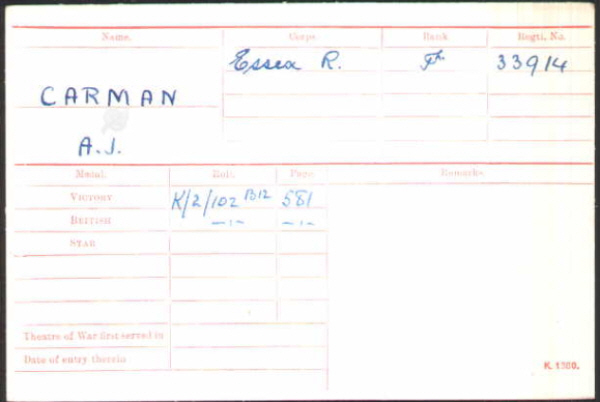 Name. Corps. Rank Regtl. No.
Essex R. Pte. 33914
CARMAN
A.J.
Medal. Roll. Page. Remarks.
VICTORY K/2/102 B12 581
BRITISH —〃— —〃—
STAR
Theatre of War first served in
Date of entry therein
K. 1380.